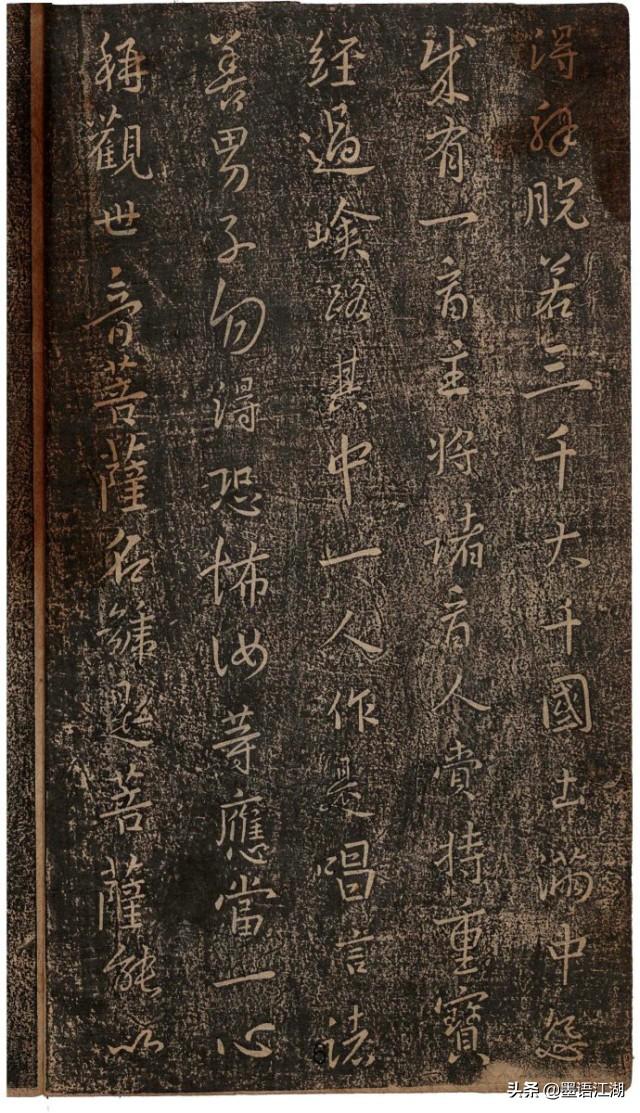 得解脱若三千大千國土滿中怨
賊有一商主將諸商人賫持重寶
經過嶮路其中一人作是唱言諸
善男子勿得恐怖汝等應當一心
稱觀世音菩薩名號是菩薩能以
6
头条 @墨语江湖